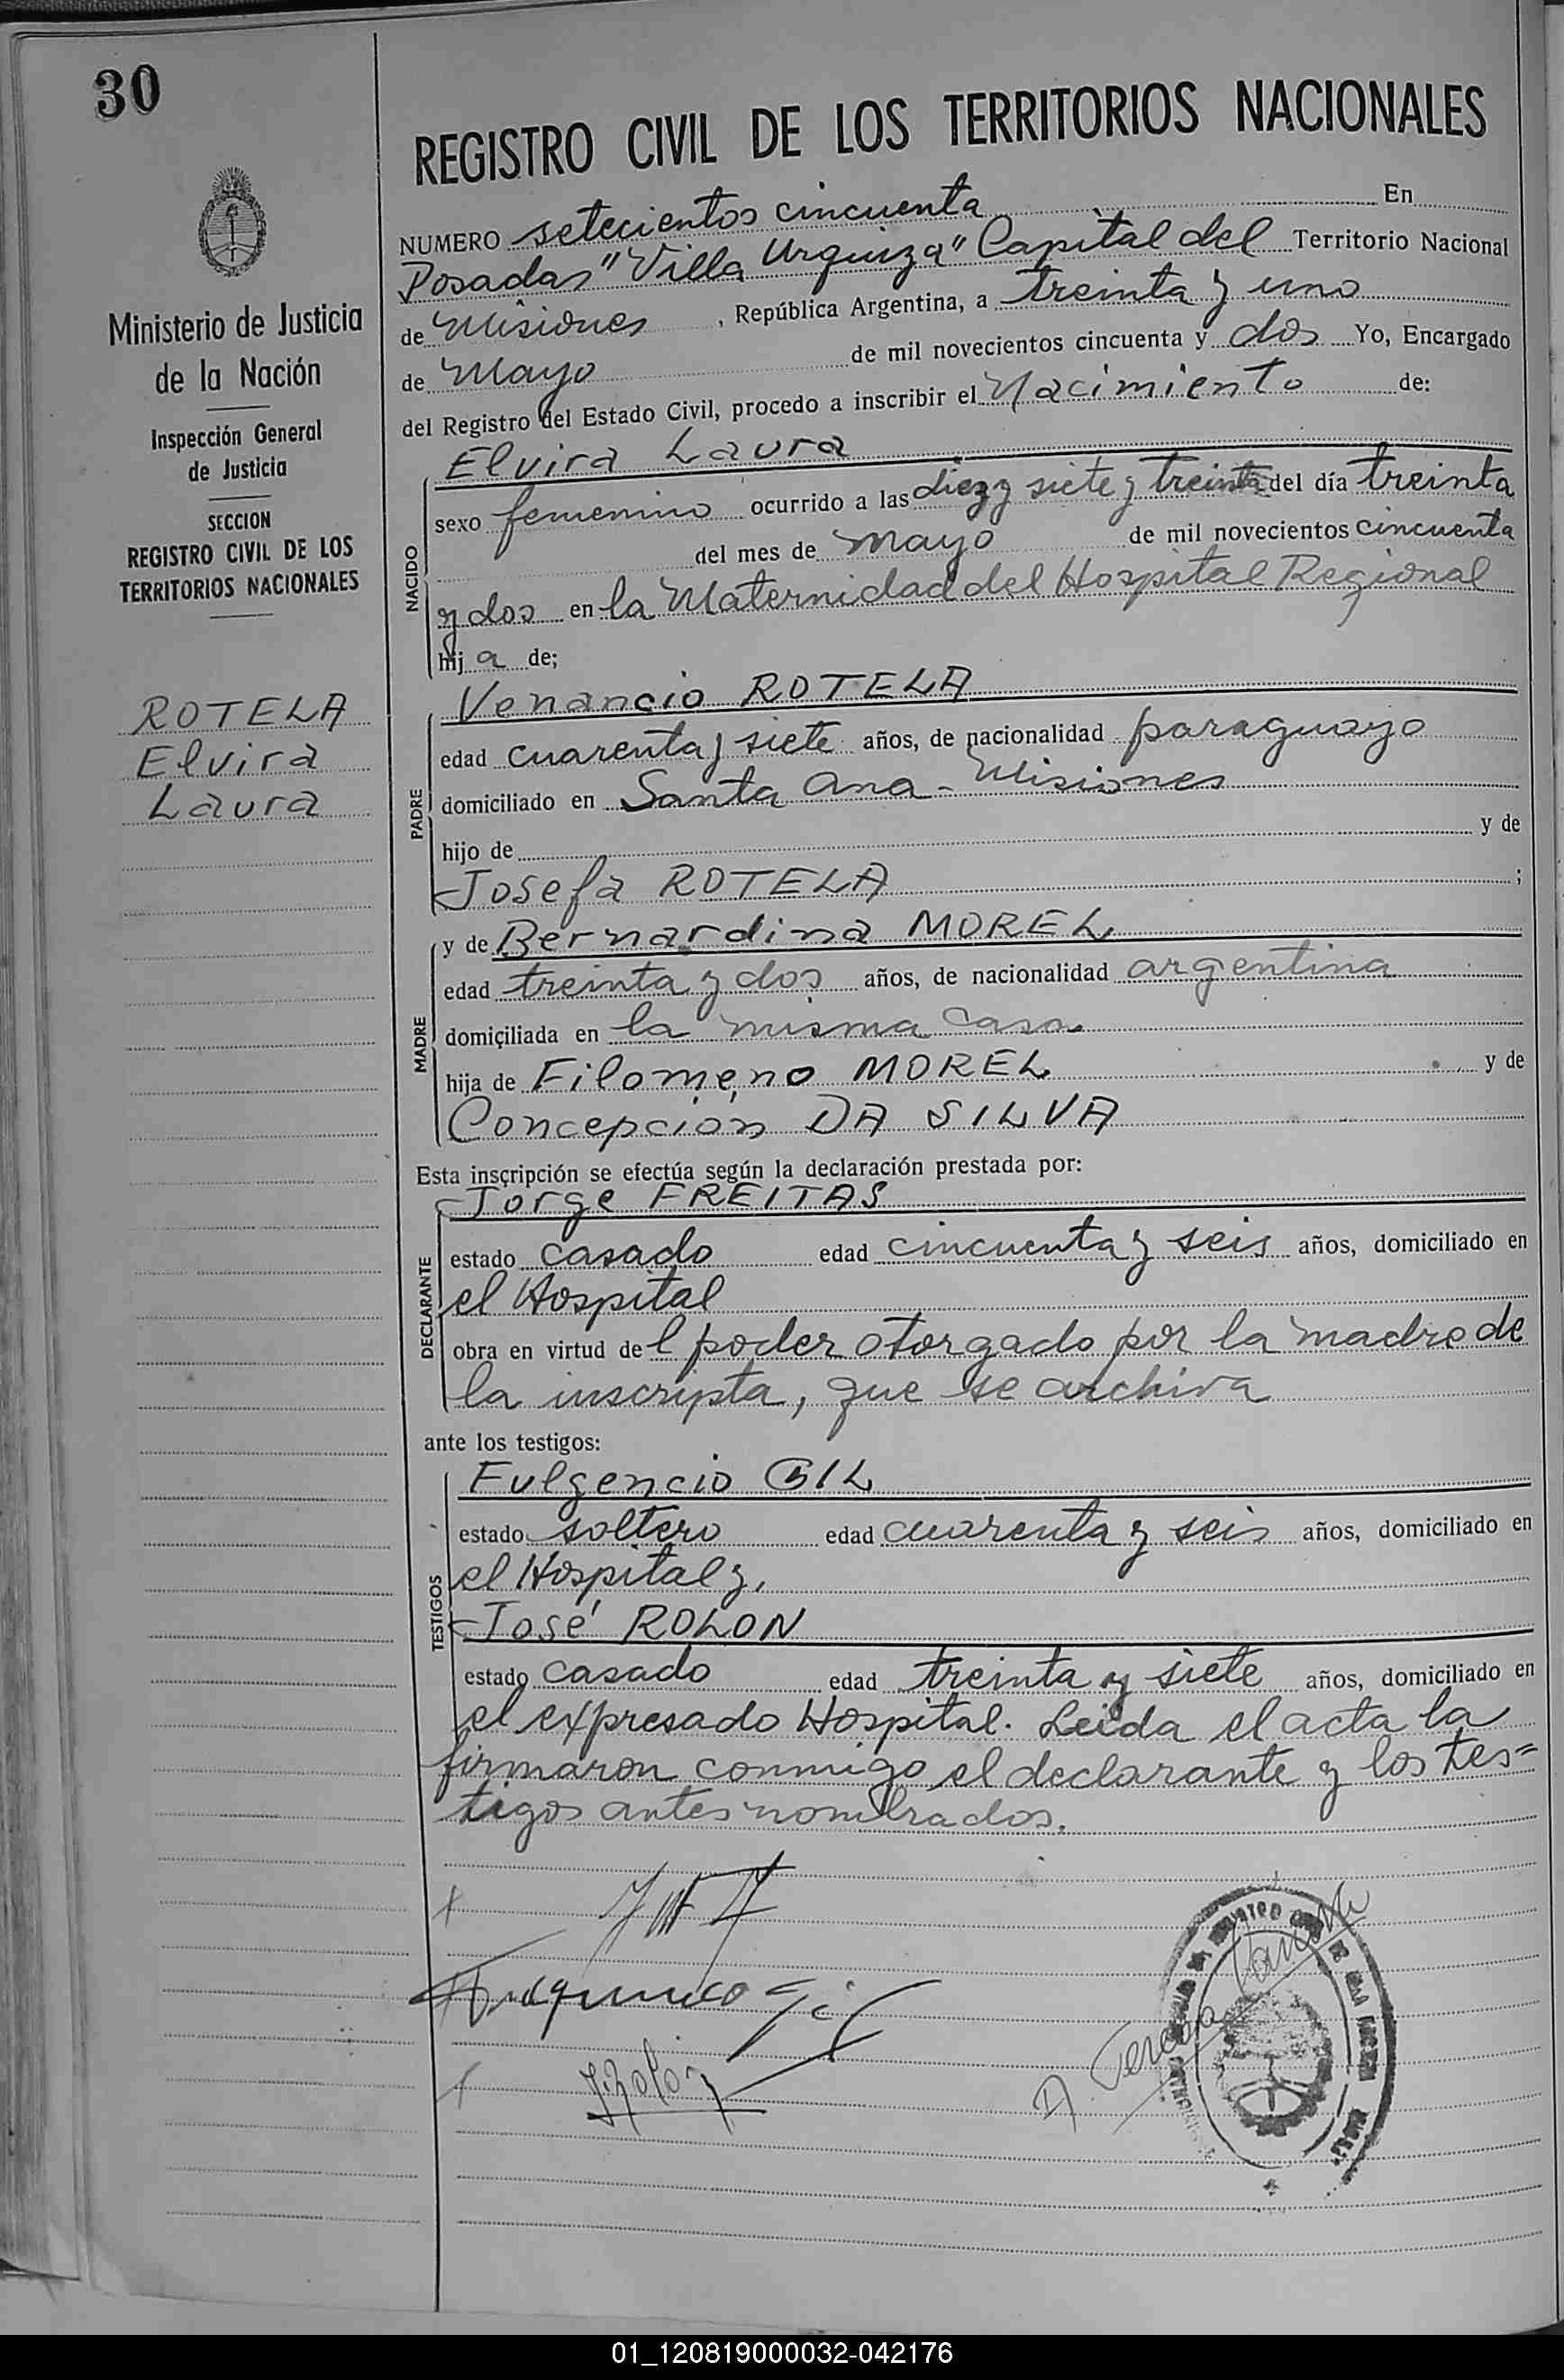 30
REGISTRO CIVIL DE LOS TERRITORIOS NACIONALES
Ministerio de Justicia
de la Nación
Inspección General
de Justicia
SECCION
REGISTRO CIVIL DE LOS
TERRITORIOS NACIONALES
ROTELA
Elvira
Laura
NUMERO setecientos cincuenta En
Posadas "Villa Urquiza" Capital del Territorio Nacional
de Misiones, República Argentina, a treinta y uno
de Mayo de mil novecientos cincuenta y dos Yo, Encargado
del Registro del Estado Civil, procedo a inscribir el Nacimiento de:
NACIDO
Elvira Laura
sexo femenino ocurrido a las diez y siete y treinta del día treinta
del mes de mayo de mil novecientos cincuenta
y dos en la Maternidad del Hospital Regional
hij a de;
PADRE
Venancio ROTELA
edad cuarenta y siete años, de nacionalidad paraguayo
domiciliado en Santa Ana - Misiones
hijo de y de
Josefa ROTELA ;
MADRE
y de Bernardina MOREL
edad treinta y dos años, de nacionalidad argentina
domiciliada en la misma casa
hija de Filomeno MOREL y de
Concepción DA SILVA
Esta inscripción se efectúa según la declaración prestada por:
DECLARANTE
Jorge FREITAS
estado casado edad cincuenta y seis años, domiciliado en
el Hospital
obra en virtud de l poder otorgado por la madre de
la inscripta, que se archiva
ante los testigos:
TESTIGOS
Fulgencio GIL
estado soltero edad cuarenta y seis años, domiciliado en
el Hospital y,
José ROLON
estado casado edad treinta y siete años, domiciliado en
el expresado Hospital. Leida el acta la
firmaron conmigo el declarante y los tes=
tigos antes nombrados.
J. Rolón
01_120819000032-042176